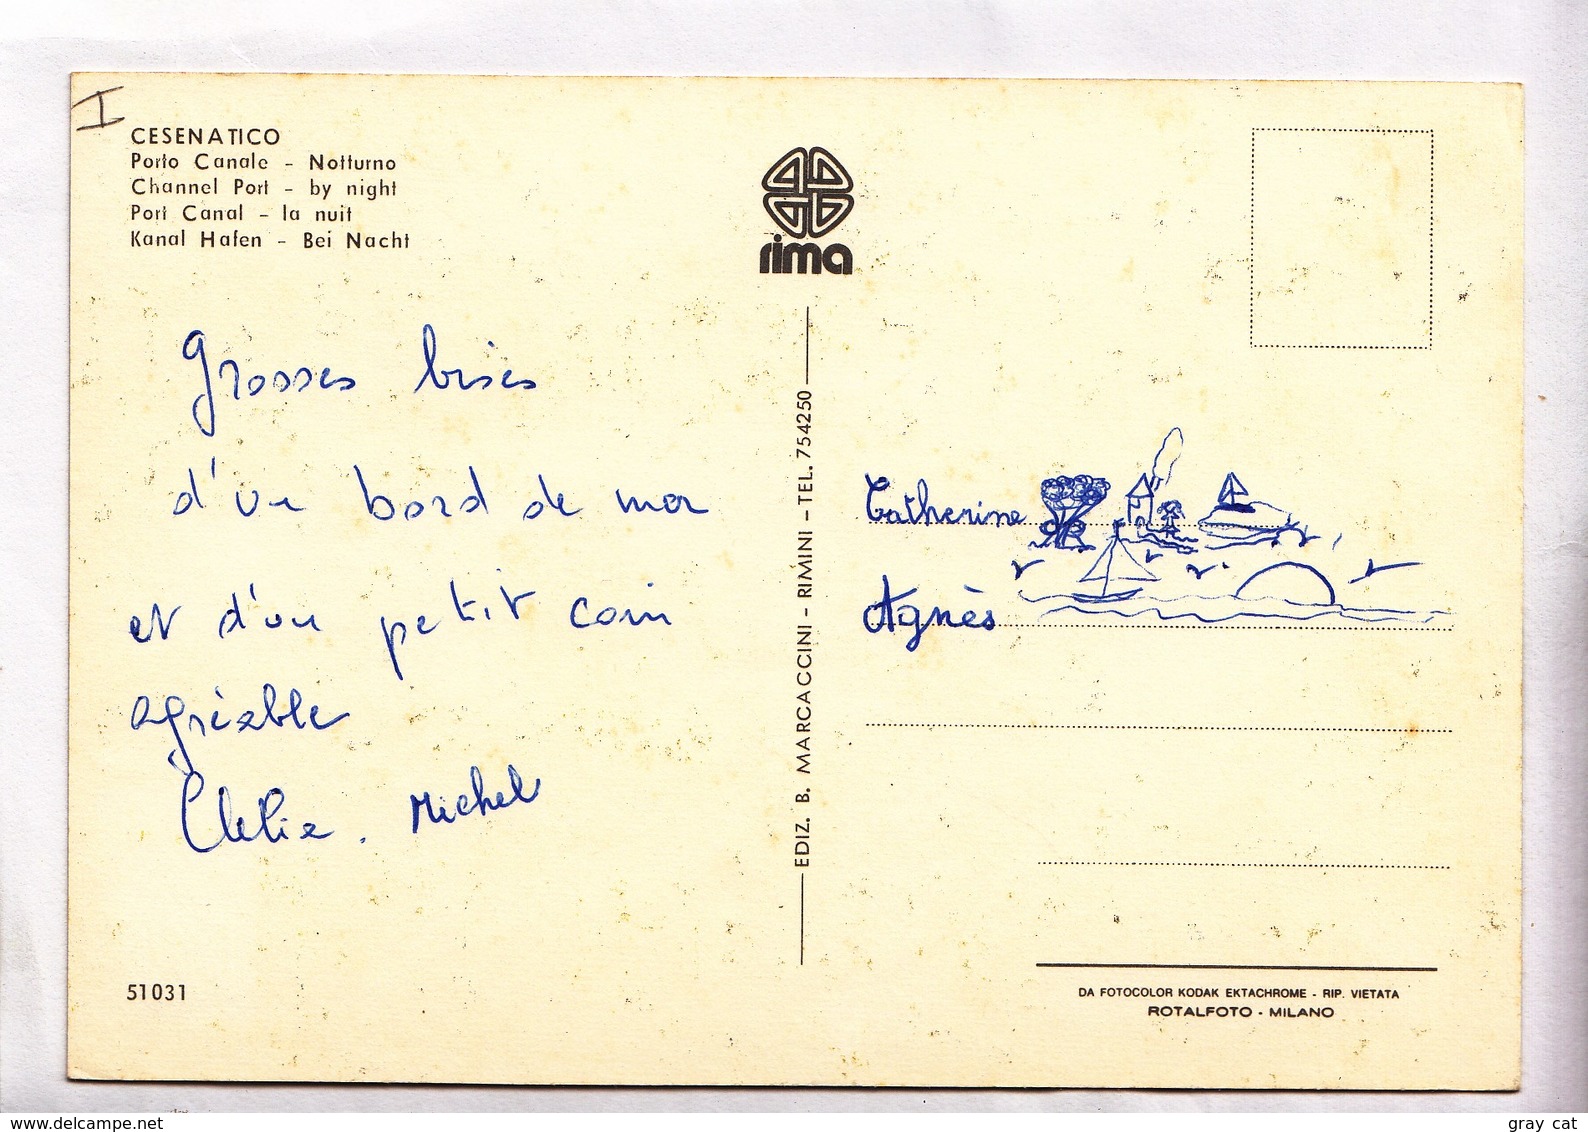 I
CESENATICO
Porto Canale - Notturno
Channel Port - by night
Port Canal - la nuit
Kanal Hafen - Bei Nacht
rima
Grosses bises
d'un bord de mer
et d'un petit coin
agréable
Clélie. Michel
EDIZ. B. MARCACCINI - RIMINI - TEL. 754250
Catherine
Agnès
51031
DA FOTOCOLOR KODAK EKTACHROME - RIP. VIETATA
ROTALFOTO - MILANO
www.delcampe.net
gray cat